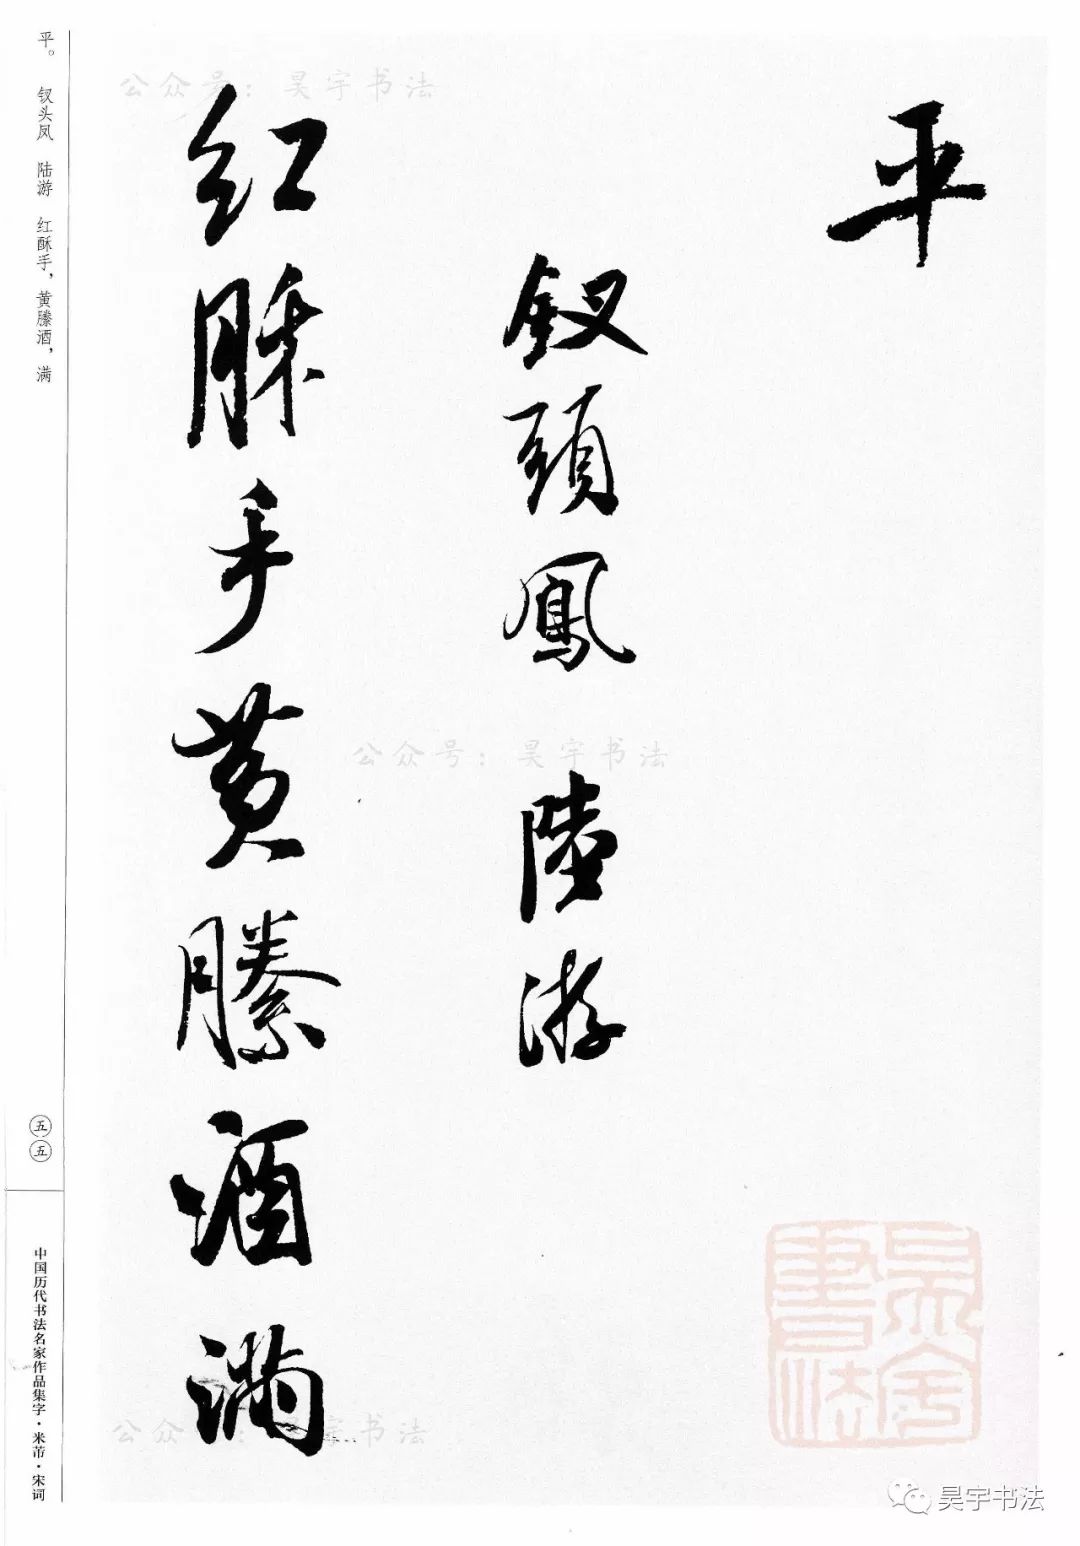 平
釵頭鳳 陸游
红酥手黄縢酒满
平。 钗头凤 陆游 红酥手，黄縢酒，满
五五
中国历代书法名家作品集字·米芾·宋词
公众号：昊宇书法
公众号：昊宇书法
公众号：昊宇书法
昊宇書法
昊宇书法